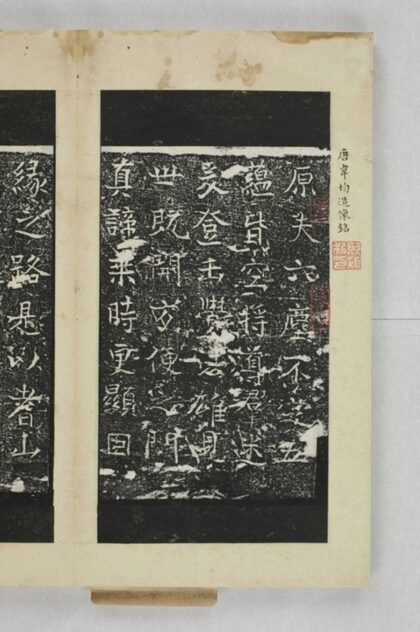 唐韋均造像銘
原夫六塵不染五
蘊皆空將導群迷
爰登覺雄見
世既開方便之門
真諦來時更顯因
緣之路是以耆山